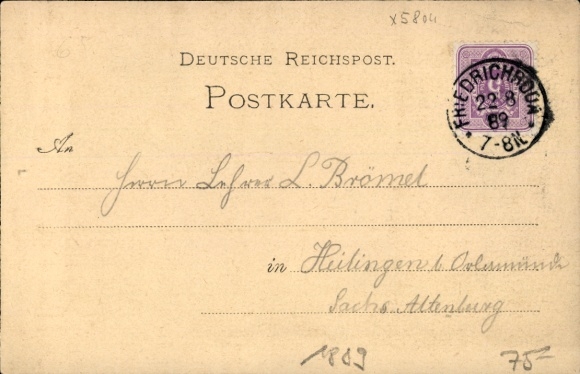 x5804
DEUTSCHE REICHSPOST.
POSTKARTE.
FRIEDRICHRODA
22 8
89
* 7-8N. *
An
Herrn Lehrer L. Brömel
in Heilingen b Orlamünde
Sachs Altenburg
1889
75-